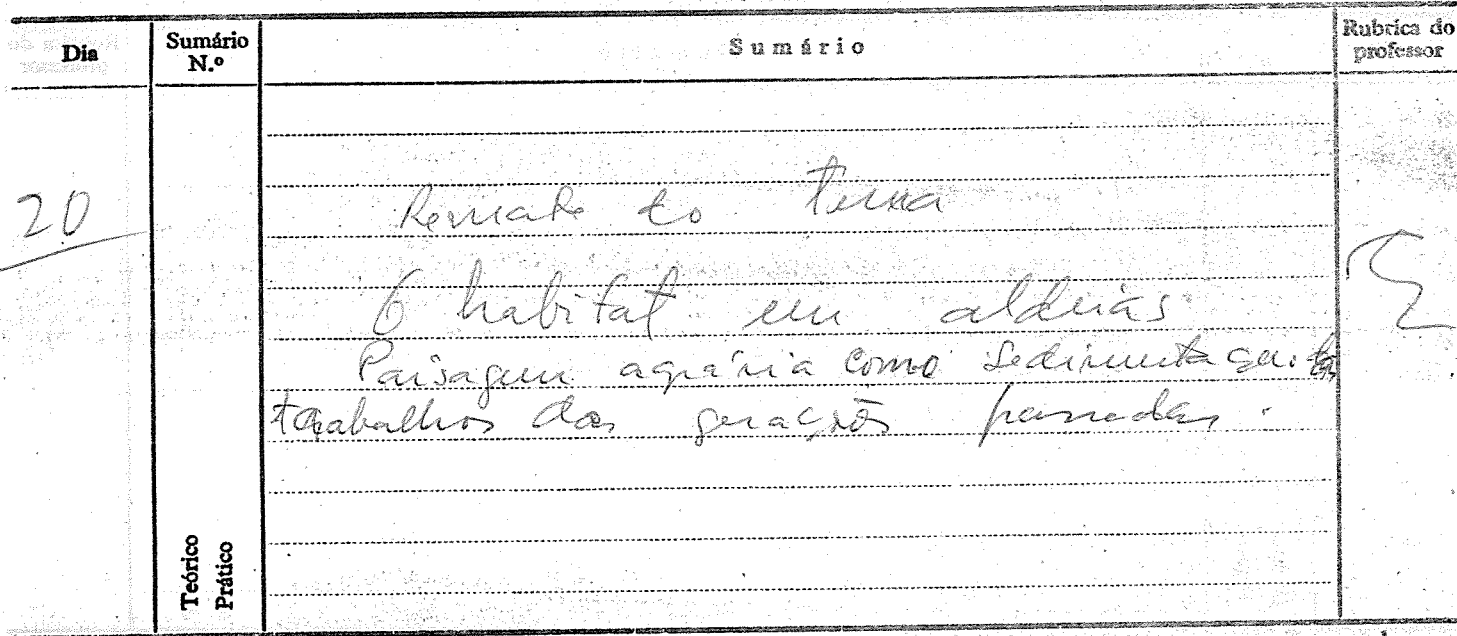 Dia
Sumário N.º
Sumário
Rubrica do professor
20
Remate do tema
O habitat em aldeias
Paisagem agrária como sedimentação dos
trabalhos das gerações passadas.
Teórico
Prático